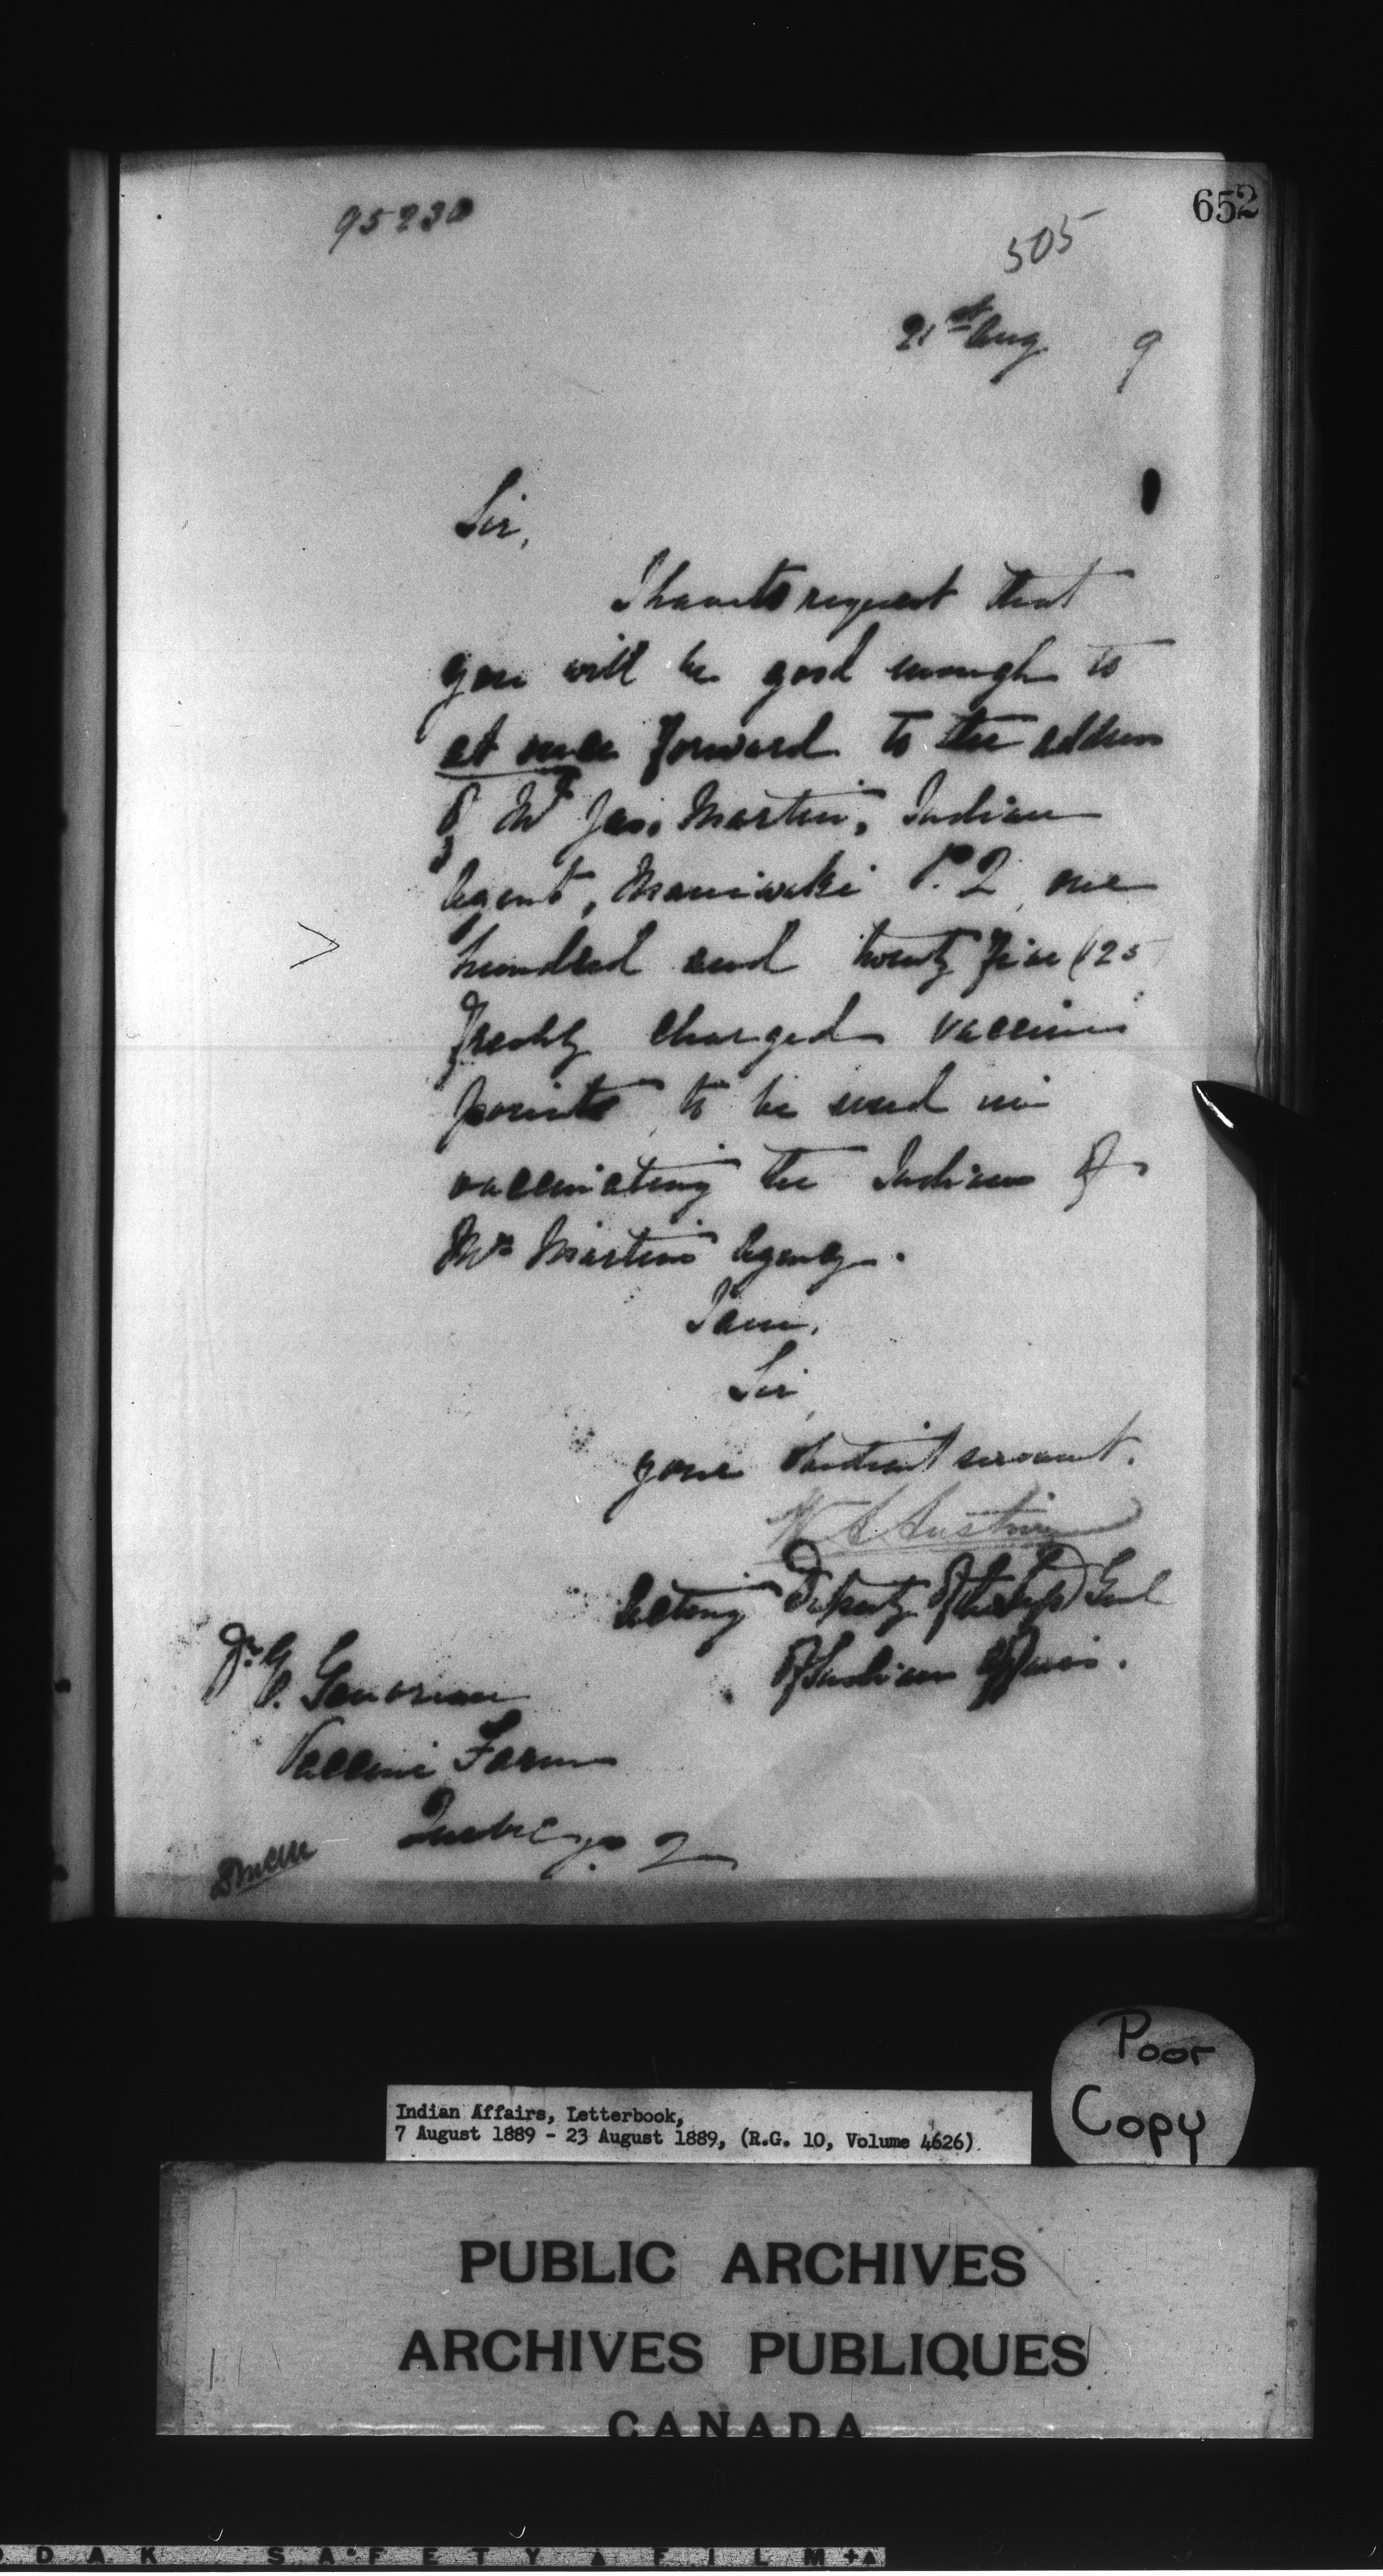 652
95230
505
21st Aug 9
Sir,
I have to request that
you will be good enough to
at once forward to the address
of Mr Jas. Martin, Indian
Agent, Maniwaki P.Q. one
hundred and twenty five (125
freshly charged vaccine
points to be used in
vaccinating the Indians of
Mr Martin's Agency.
I am,
Sir
your obedient servant.
Austin
Acting Deputy of the Supt Genl
of Indian Affairs.
Dr.
Vaccine Farm
Quebec P. Q
Poor
Copy
Indian Affairs, Letterbook,
7 August 1889 - 23 August 1889, (R.G. 10, Volume 4626)
PUBLIC ARCHIVES
ARCHIVES PUBLIQUES
CANADA
DAK SAFETY FILM